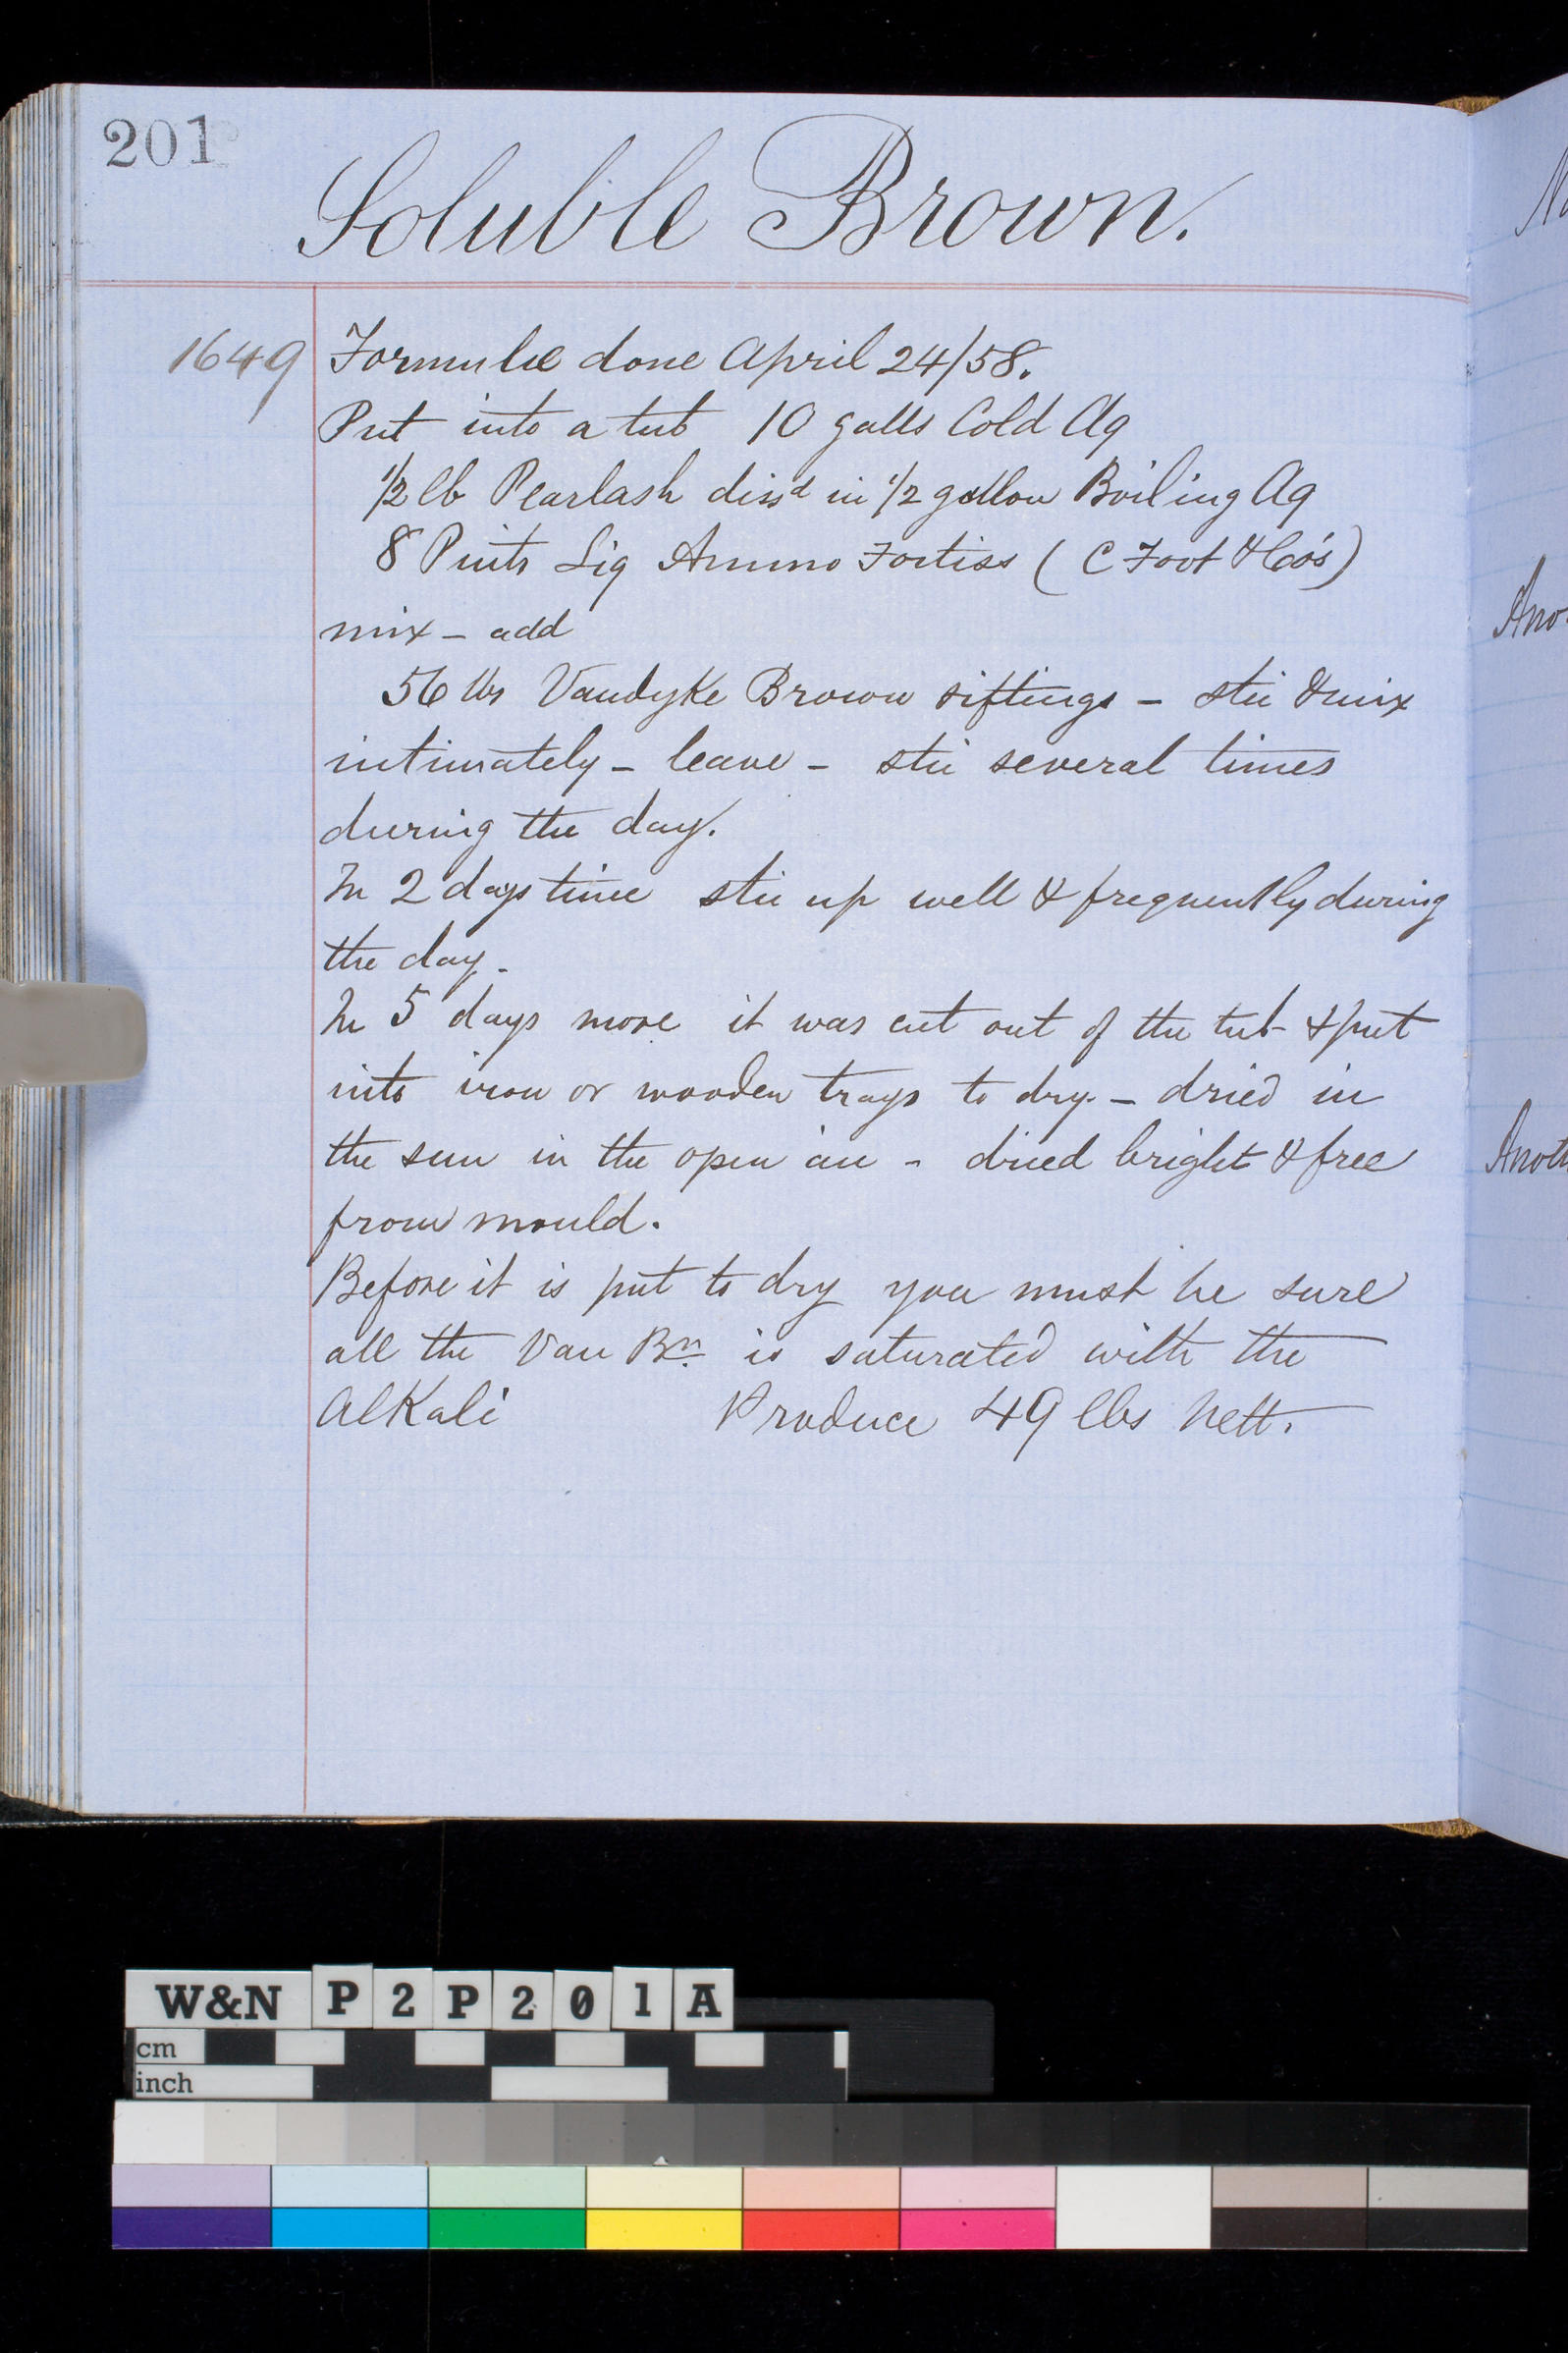 201
Soluble Brown.
1649 Formulæ done April 24/58.
Put into a tub 10 galls Cold Aq
1/2 lb Pearlash dissd in 1/2 gallon Boiling Aq
8 Pints Liq Ammo Fortiss ( C Foot & Co's )
mix - add
56 lbs VandyKe Brown siftings - stir & mix
intimately - leave - stir several times
during the day.
In 2 days time stir up well & frequently during
the day -
In 5 days more it was cut out of the tub & put
into iron or wooden trays to dry - dried in
the sun in the open air - dried bright & free
from mould.
Before it is put to dry you must be sure
all the Van Brn is saturated with the
AlKali Produce 49 lbs Nett.
Ano
Anoth
W&N P2P201A
cm
inch